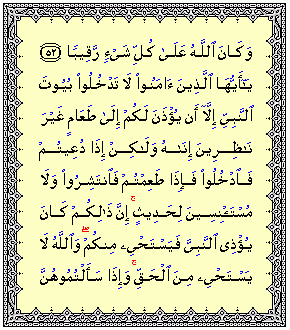 وَكَانَ ٱللَّهُ عَلَىٰ كُلِّ شَىْءٍ رَّقِيبًا ٥٢
يَـٰٓأَيُّهَا ٱلَّذِينَ ءَامَنُوا۟ لَا تَدْخُلُوا۟ بُيُوتَ
ٱلنَّبِىِّ إِلَّآ أَن يُؤْذَنَ لَكُمْ إِلَىٰ طَعَامٍ غَيْرَ
نَـٰظِرِينَ إِنَىٰهُ وَلَـٰكِنْ إِذَا دُعِيتُمْ
فَٱدْخُلُوا۟ فَإِذَا طَعِمْتُمْ فَٱنتَشِرُوا۟ وَلَا
مُسْتَـْٔنِسِينَ لِحَدِيثٍ ۚ إِنَّ ذَٰلِكُمْ كَانَ
يُؤْذِى ٱلنَّبِىَّ فَيَسْتَحْىِۦ مِنكُمْ ۖ وَٱللَّهُ لَا
يَسْتَحْىِۦ مِنَ ٱلْحَقِّ ۚ وَإِذَا سَأَلْتُمُوهُنَّ